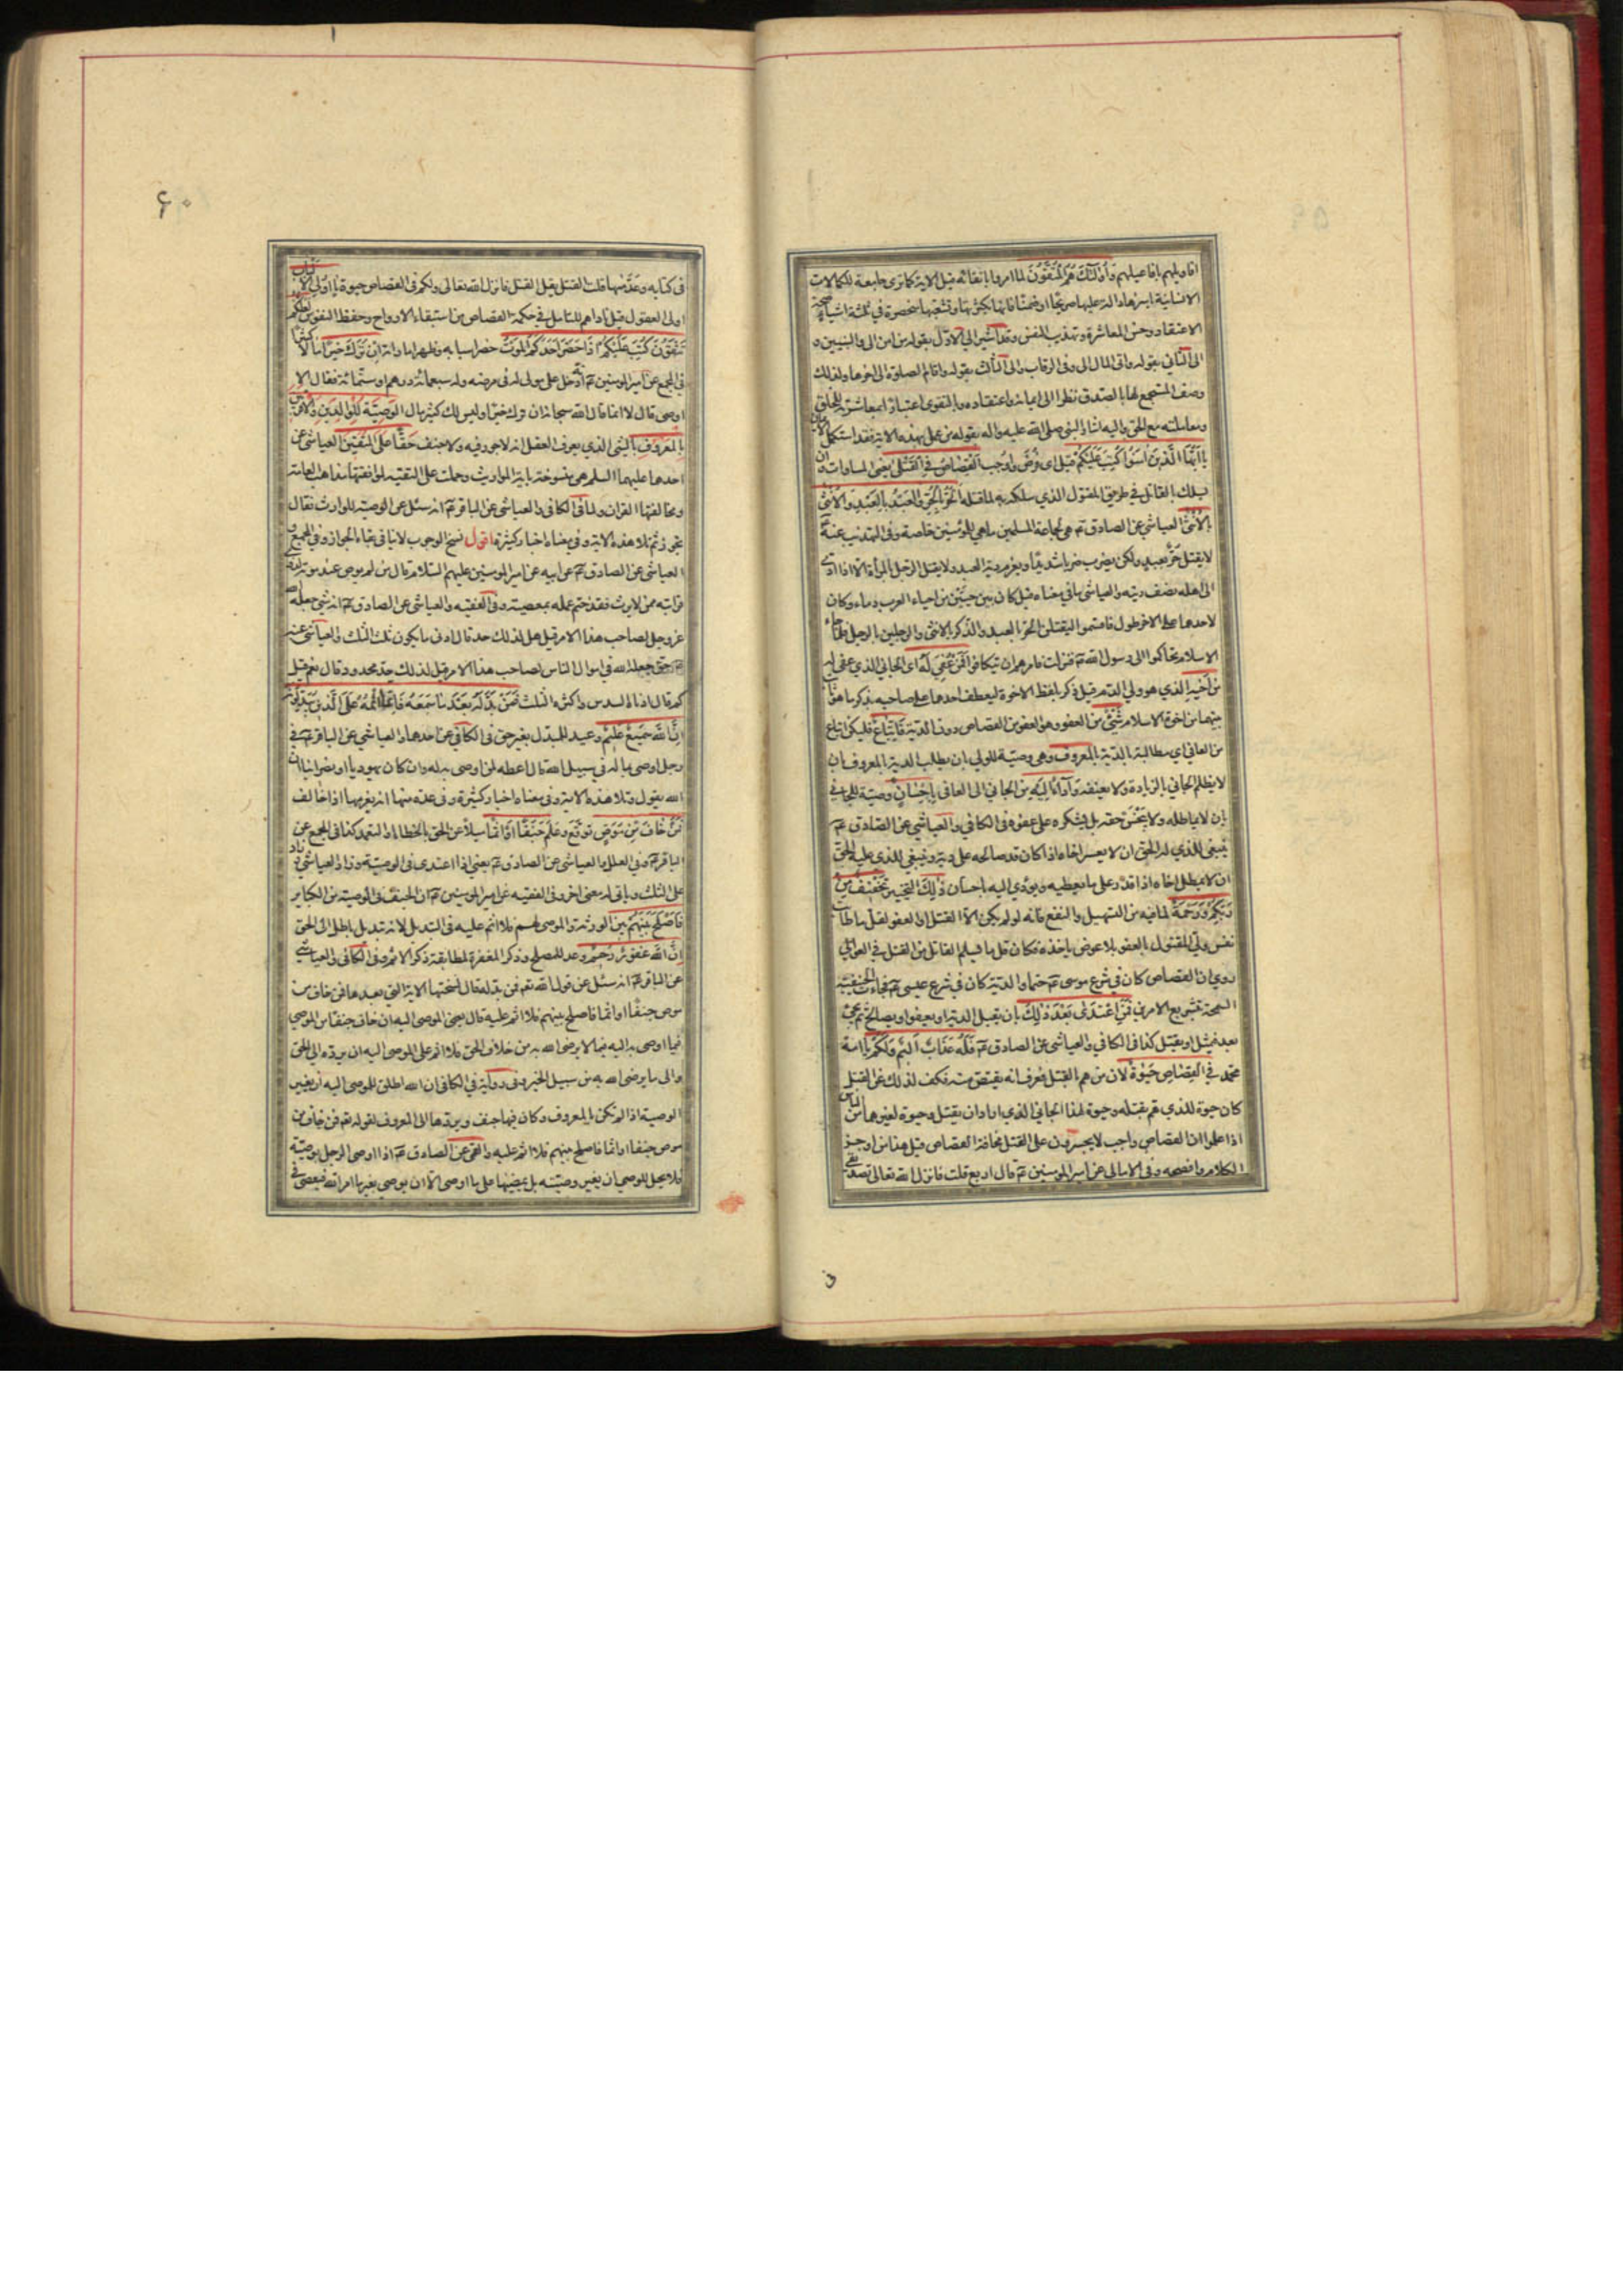 اقاويلهم بافاعيلهم وَأُولَٰئِكَ هُمُ الْمُتَّقُونَ لما امروا باتقائه قيل الاية كما ترى جامعة للكمالات
الانسانية باسرها دالة عليها صريحا او ضمنا فانها بكثرتها وتشعبها منحصرة في ثلثة اشياء صحة
الاعتقاد وحسن المعاشرة وتهذيب النفس وقد اشير الى الاول بقوله من امن الى والنبيين و
الى الثاني بقوله واتى المال الى وفي الرقاب والى الثالث بقوله واقام الصلوة الى اخرها ولذلك
وصف المستجمع لها بالصدق نظرا الى ايمانه واعتقاده وبالتقوى اعتبارا بمعاشرته للخلق
ومعاملته مع الحق واليه اشار النبي صلى الله عليه واله بقوله من عمل بهذه الاية فقد استكمل الايمان
يَا أَيُّهَا الَّذِينَ آمَنُوا كُتِبَ عَلَيْكُمْ قيل اى فرض واوجب الْقِصَاصُ فِي الْقَتْلَى يعنى المساوات وان
يسلك بالقاتل في طريق المقتول الذي سلكه به لما قتله الْحُرُّ بِالْحُرِّ وَالْعَبْدُ بِالْعَبْدِ وَالْأُنْثَى
بِالْأُنْثَى العياشي عن الصادق ع هي لجماعة المسلمين ما هي للمؤمنين خاصة وفي التهذيب عنه ع
لا يقتل حر بعبد ولكن يضرب ضربا شديدا ويغرم دية العبد ولا يقتل الرجل بالمرأة الا اذا ادى
الى اهله نصف ديته والعياشي ما في معناه قيل كان بين حيين من احياء العرب دماء وكان
لاحدهما على الاخر طول فاقسموا ليقتلن الحر بالعبد والذكر بالانثى والرجلين بالرجل فلما جاء
الاسلام تحاكموا الى رسول الله ص فنزلت فامرهم ان يتكافوا فَمَنْ عُفِيَ لَهُ اى الجاني الذي عفى له
مِنْ أَخِيهِ الذي هو ولي الدم قيل ذكر بلفظ الاخوة ليعطف احدهما على صاحبه بذكر ما هو ثابت
بينهما من اخوة الاسلام شَيْءٌ من العفو وهو العفو من القصاص دون الدية فَاتِّبَاعٌ فليكن اتباع
من العافي اى مطالبة بالدية بِالْمَعْرُوفِ وهى وصية للولي بان يطلب الدية بالمعروف بان
لا يظلم الجاني بالزيادة ولا يعنفه وَأَدَاءٌ إِلَيْهِ من الجاني الى العافى بِإِحْسَانٍ وصية للجاني
بان لا يماطله ولا يبخس حقه بل يشكره على عفوه في الكافي والعياشي عن الصادق ع
ينبغي للذي له الحق ان لا يعسر اخاه اذا كان قد صالحه على دية وينبغي للذي عليه الحق
ان لا يمطل اخاه اذا قدر على ما يعطيه ويؤدي اليه باحسان ذَٰلِكَ التخيير تَخْفِيفٌ مِنْ
رَبِّكُمْ وَرَحْمَةٌ لما فيه من التسهيل والنفع فانه لو لم يكن الا القتل او العفو لقل ما طابت
نفس ولي المقتول بالعفو بلا عوض ياخذه فكان قل ما يسلم القاتل من القتل في العوالي
روي ان القصاص كان في شرع موسى ع حتما والدية كان في شرع عيسى ع فجاءت الحنيفية
السمحة بتشريع الامرين فَمَنِ اعْتَدَى بَعْدَ ذَٰلِكَ بان يقبل الدية او يعفو او يصالح ثم يجيء
بعد فيمثل او يقتل كذا في الكافي والعياشي عن الصادق ع فَلَهُ عَذَابٌ أَلِيمٌ وَلَكُمْ يا امة
محمد فِي الْقِصَاصِ حَيَوٰةٌ لان من هم بالقتل فعرف انه يقتص منه فكف لذلك عن القتل
كان حيوة للذي هم بقتله وحيوة لهذا الجاني الذي اراد ان يقتل وحيوة لغيرهما من الناس
اذا علموا ان القصاص واجب لا يجسرون على القتل مخافة القصاص قيل هذا من اوجز
الكلام وافصحه وفي الامالي عن امير المؤمنين ع قال اربع قلت فانزل الله تعالى تصديقي
۶۰
في كتابه وعد منها قلت القتل يقل القتل فانزل الله تعالى ولكم في القصاص حيوة يَا أُولِي الْأَلْبَابِ
اولى العقول قيل ناداهم للتامل في حكمة القصاص من استبقاء الارواح وحفظ النفوس لَعَلَّكُمْ
تَتَّقُونَ كُتِبَ عَلَيْكُمْ إِذَا حَضَرَ أَحَدَكُمُ الْمَوْتُ حضر اسبابه وظهر اماراته إِنْ تَرَكَ خَيْرًا مالا كثيرا
في المجمع عن امير المؤمنين ع انه دخل على مولى له في مرضه وله سبعمائة درهم او ستمائة فقال الا
اوصى قال لا انما قال الله سبحانه ان ترك خيرا وليس لك كثير مال الْوَصِيَّةُ لِلْوَالِدَيْنِ وَالْأَقْرَبِينَ
بِالْمَعْرُوفِ بالشئ الذي يعرف العقل انه لا جور فيه ولا جنف حَقًّا عَلَى الْمُتَّقِينَ العياشي عن
احدهما عليهما السلام هى منسوخة باية المواريث وحملت على التقية لموافقتها مذاهب العامة
ومخالفتها القران ولما في الكافي والعياشي عن الباقر ع انه سئل عن الوصية للوارث فقال
تجوز ثم تلا هذه الاية وفي معناه اخبار كثيرة اقول نسخ الوجوب لا ينافي بقاء الجواز وفي المجمع و
العياشي عن الصادق ع عن ابيه عن امير المؤمنين عليهم السلام قال من لم يوص عند موته لذوي
قرابته ممن لا يرث فقد ختم عمله بمعصيته وفي الفقيه والعياشي عن الصادق ع انه شئ جعله الله
عز وجل لصاحب هذا الامر قيل هل لذلك حد قال ادنى ما يكون ثلث الثلث والعياشي عنه
حق جعله الله في اموال الناس لصاحب هذا الامر قيل لذلك حد محدود قال نعم قيل
كم قال ادناه السدس واكثره الثلث فَمَنْ بَدَّلَهُ بَعْدَ مَا سَمِعَهُ فَإِنَّمَا إِثْمُهُ عَلَى الَّذِينَ يُبَدِّلُونَهُ
إِنَّ اللَّهَ سَمِيعٌ عَلِيمٌ وعيد للمبدل بغير حق في الكافي عن احدهما والعياشي عن الباقر ع في
رجل اوصى بماله في سبيل الله قال اعطه لمن اوصى به له وان كان يهوديا او نصرانيا ان
الله يقول وتلا هذه الاية وفي معناه اخبار كثيرة وفي عدة منها انه يغرمها اذا خالف
فَمَنْ خَافَ مِنْ مُوصٍ توقع وعلم جَنَفًا أَوْ إِثْمًا ميلا عن الحق بالخطاء او التعمد كذا في المجمع عن
الباقر ع وفي العلل والعياشي عن الصادق ع يعني اذا اعتدى في الوصية وزاد العياشي وزاد
على الثلث وياتى له معنى اخر وفي الفقيه عن امير المؤمنين ع ان الجنف في الوصية من الكباير
فَأَصْلَحَ بَيْنَهُمْ بين الورثة والموصى لهم فلا اثم عليه في التبديل لانه تبديل باطل الى الحق
إِنَّ اللَّهَ غَفُورٌ رَحِيمٌ وعد للمصلح وذكر المغفرة لمطابقة ذكر الاثم وفي الكافي والعياشي
عن الباقر ع انه سئل عن قول الله تع فمن بدله قال نسختها الاية التي بعدها فمن خاف من
موص جنفا او اثما فاصلح بينهم فلا اثم عليه قال يعنى الموصى اليه ان خاف جنفا من الموصي
فيما اوصى به اليه فيما لا يرضى الله به من خلاف الحق فلا اثم على الموصى اليه ان يرده الى الحق
والى ما يرضى الله به من سبيل الخير وفي رواية في الكافي ان الله اطلق للموصى اليه ان يغير
الوصية اذا لم تكن بالمعروف وكان فيها جنف ويردها الى المعروف لقوله تع فمن خاف من
موص جنفا او اثما فاصلح بينهم فلا اثم عليه والقمى عن الصادق ع اذا اوصى الرجل بوصية
فلا يحل للوصي ان يغير وصيته بل يمضيها على ما اوصى الا ان يوصي بغير ما امر الله فيعصى في